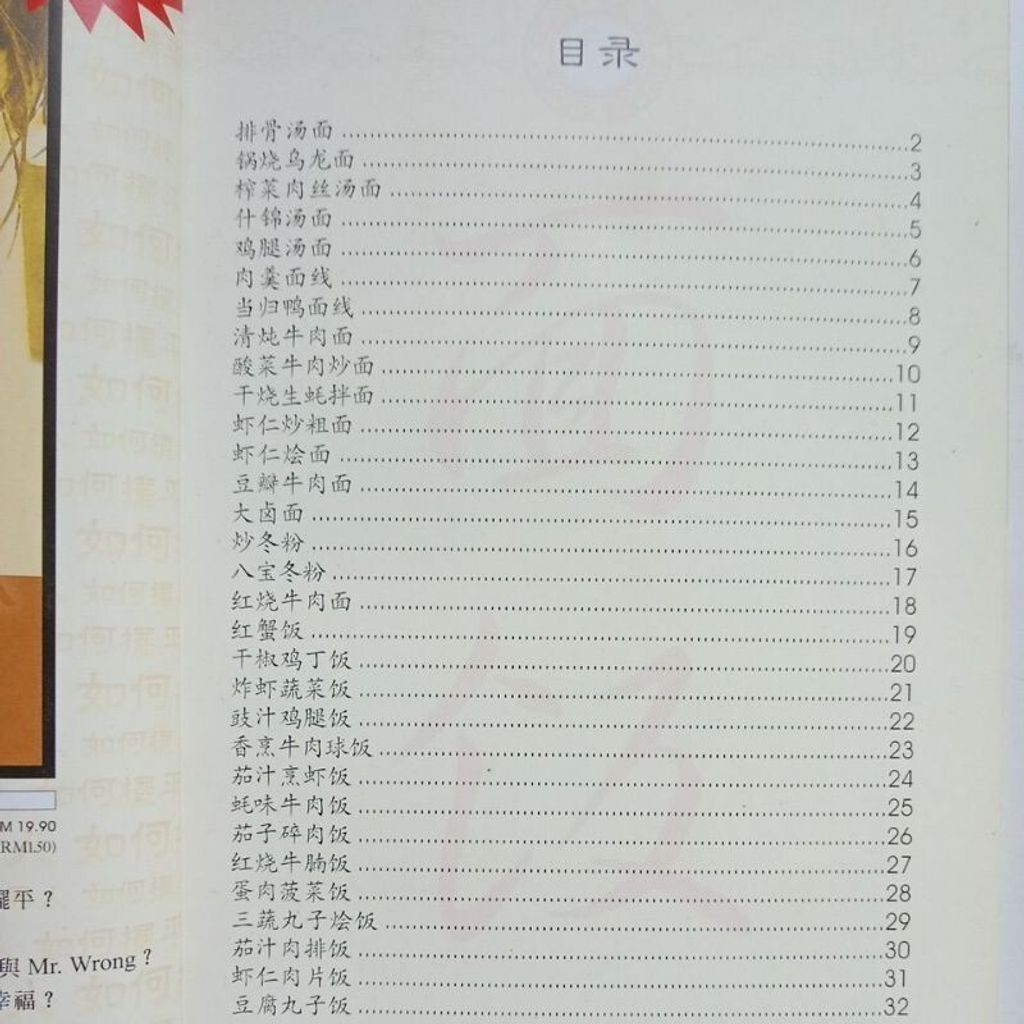 目录
排骨汤面 2
锅烧乌龙面 3
榨菜肉丝汤面 4
什锦汤面 5
鸡腿汤面 6
肉羹面线 7
当归鸭面线 8
清炖牛肉面 9
酸菜牛肉炒面 10
干烧生蚝拌面 11
虾仁炒粗面 12
虾仁烩面 13
豆瓣牛肉面 14
大卤面 15
炒冬粉 16
八宝冬粉 17
红烧牛肉面 18
红蟹饭 19
干椒鸡丁饭 20
炸虾蔬菜饭 21
豉汁鸡腿饭 22
香烹牛肉球饭 23
茄汁烹虾饭 24
蚝味牛肉饭 25
茄子碎肉饭 26
红烧牛腩饭 27
蛋肉菠菜饭 28
三蔬丸子烩饭 29
茄汁肉排饭 30
虾仁肉片饭 31
豆腐丸子饭 32
M 19.90
RM1.50)
擺平？
與 Mr. Wrong？
幸福？